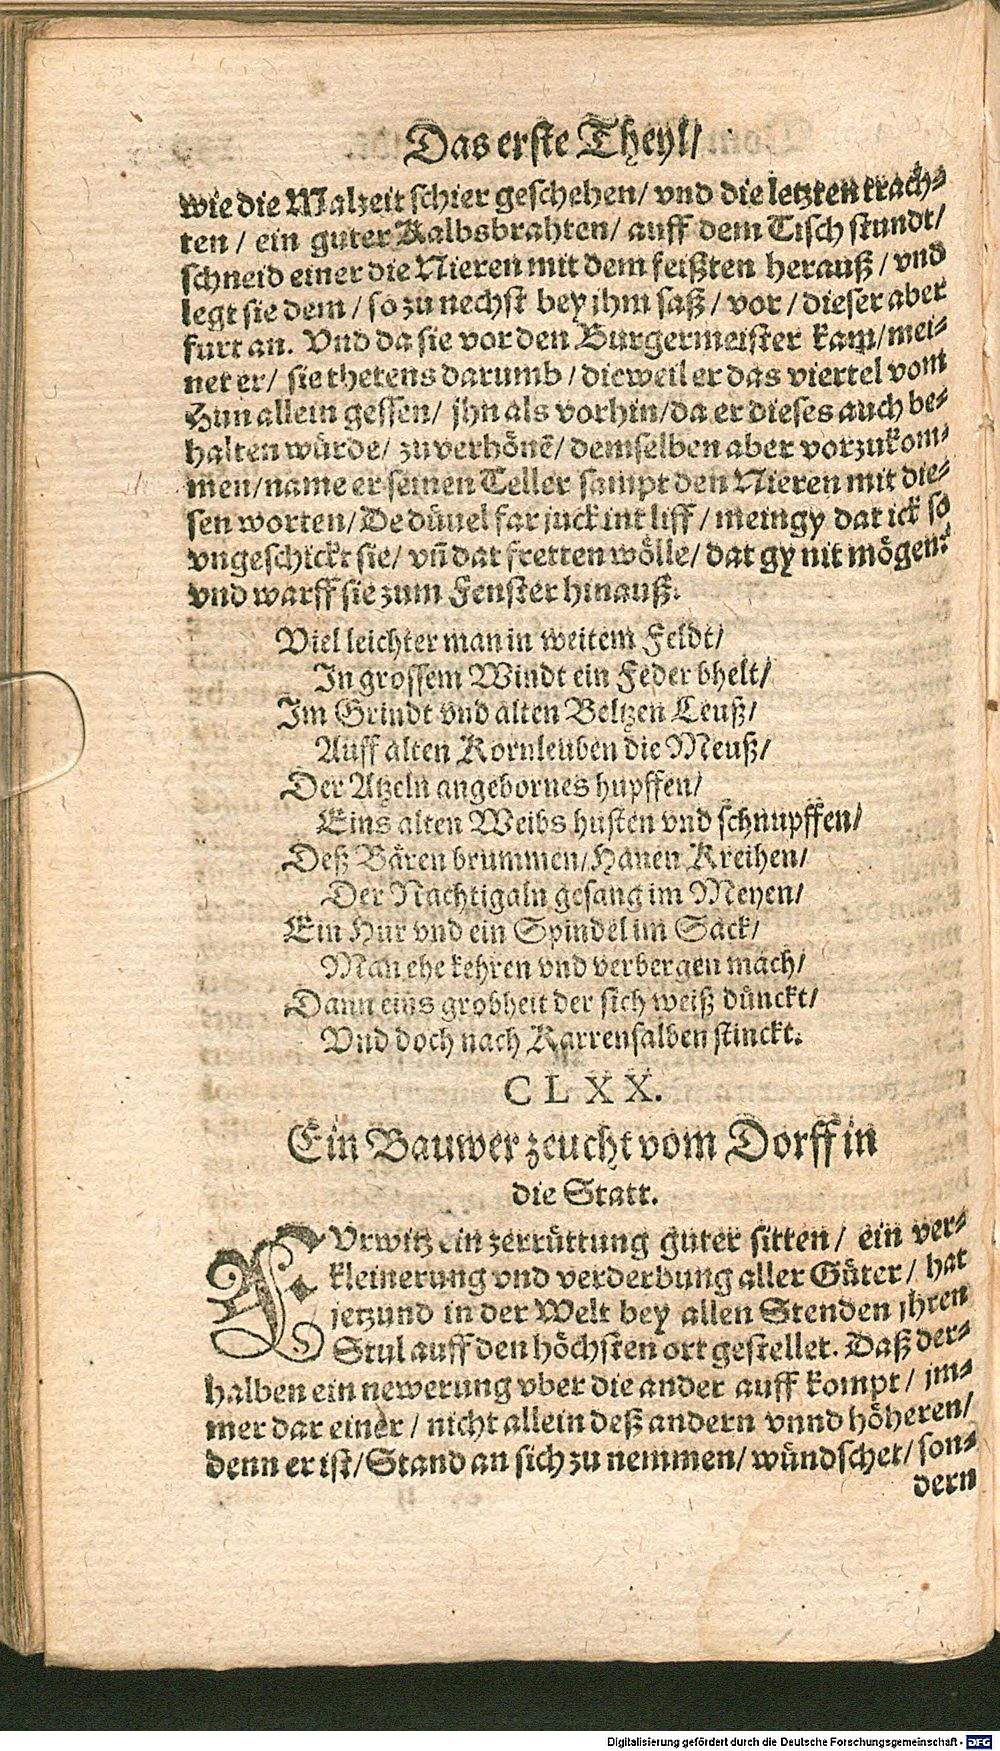 Das erste Theyl/
wie die Malzeit schier geschehen/ vnd die letzten trach-
ten / ein guter Kalbsbrahten/ auff dem Tisch stundt/
schneid einer die Nieren mit dem feißten herauß / vnd
legt sie dem / so zu nechst bey jhm saß / vor / dieser aber
furt an. Vnd da sie vor den Burgermeister kam/ mei-
net er/ sie thetens darumb / dieweil er das viertel vom
Hun allein gessen/ jhn als vorhin/ da er dieses auch be-
halten würde/ zu verhönē/ demselben aber vorzukom-
men/ name er seinen Teller sampt den Nieren mit die-
sen worten/ De düuel far juck int liff / meingy dat ick so
vngeschickt sie/ vñ dat fretten wölle/ dat gy nit mögen:
vnd warff sie zum Fenster hinauß.
Viel leichter man in weitem Feldt/
In grossem Windt ein Feder bhelt/
Im Grindt vnd alten Beltzen Leuß/
Auff alten Kornleuben die Meuß/
Der Atzeln angebornes hupffen/
Eins alten Weibs husten vnd schnupffen/
Deß Bären brummen/ Hanen Kreihen/
Der Nachtigaln gesang im Meyen/
Ein Hur vnd ein Spindel im Sack/
Man ehe kehren vnd verbergen mach/
Dann eins grobheit der sich weiß dünckt/
Vnd doch nach Karrensalben stinckt.
CLXX.
Ein Bauwer zeucht vom Dorff in
die Statt.
FVrwitz ein zerrüttung guter sitten / ein ver-
kleinerung vnd verderbung aller Güter / hat
jetzund in der Welt bey allen Stenden jhren
Stul auff den höchsten ort gestellet. Daß der-
halben ein newerung vber die ander auff kompt / jm-
mer dar einer / nicht allein deß andern vnnd höheren/
denn er ist/ Stand an sich zu nemmen/ wündschet/ son-
dern
Digitalisierung gefördert durch die Deutsche Forschungsgemeinschaft - DFG